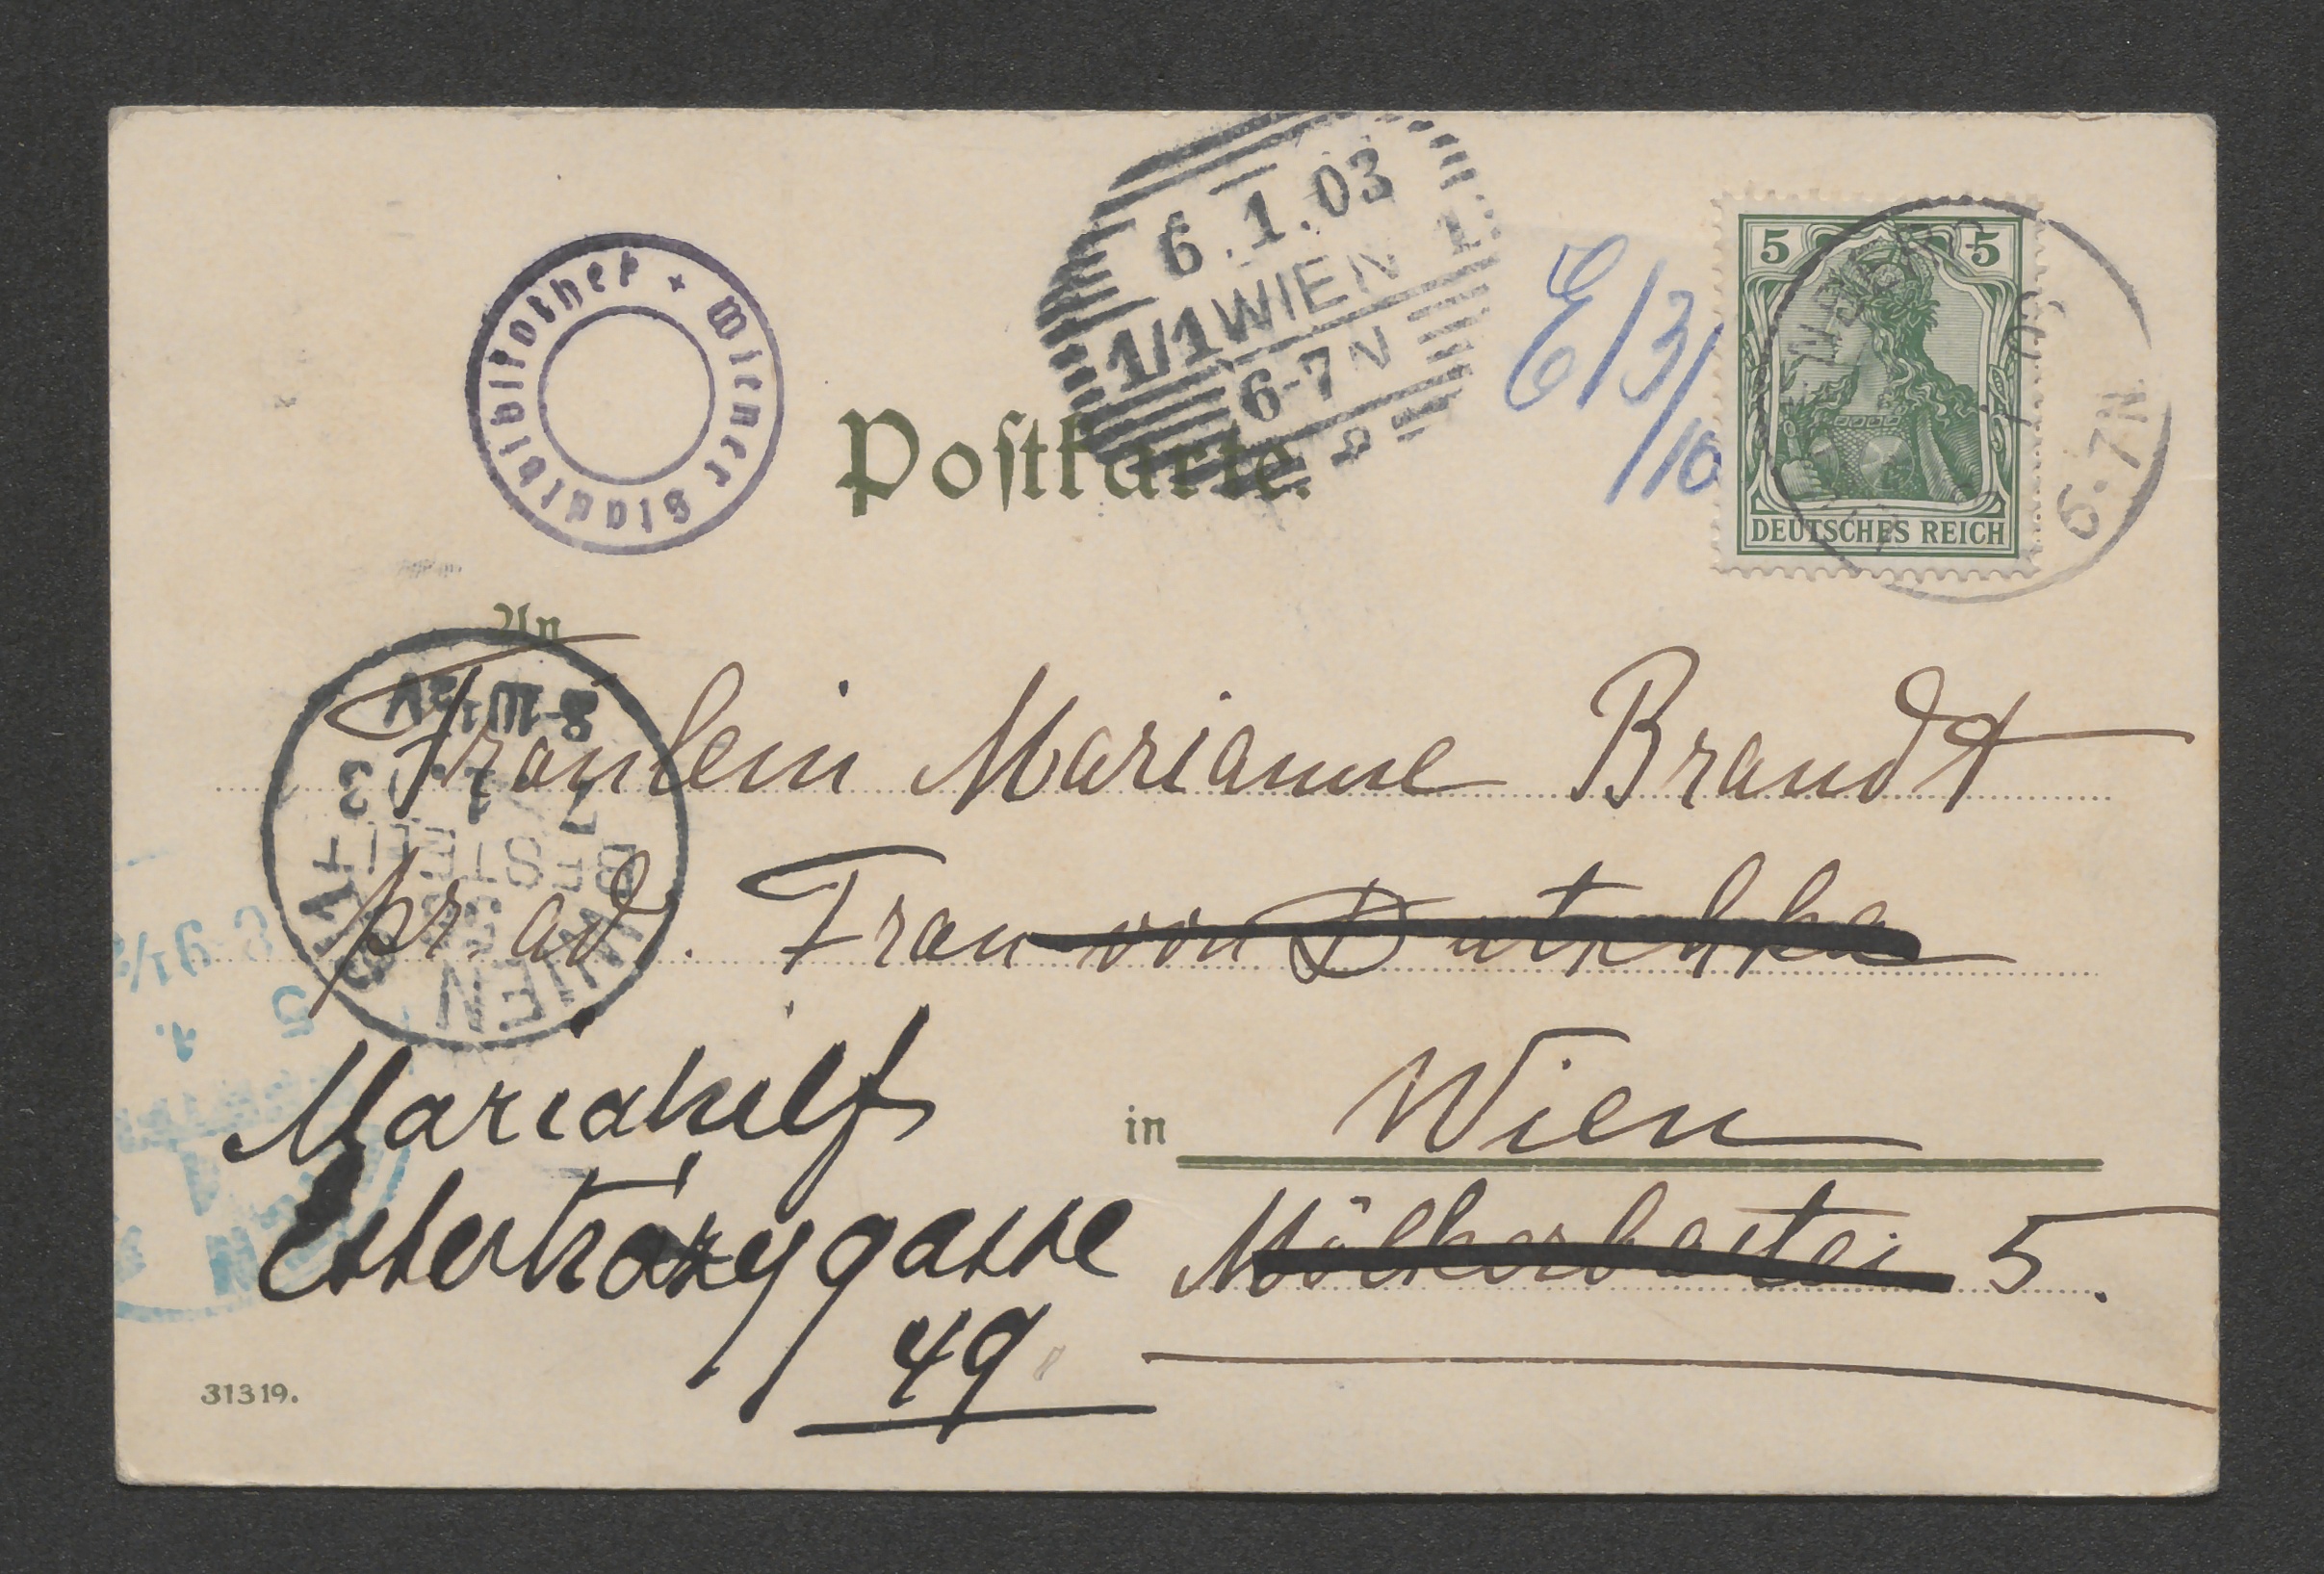 6.1.03
1/1 WIEN 1
6-7N
E/3/10
5 5
DEUTSCHES REICH
6-7N
Wiener Stadtbibliothek
Postkarte.
An
Fräulein Marianne Brandt
pr. adr. Frau von
8-11½V
7 1 03
BESTELLT
WIEN
Mariahilf
in Wien
Esterházygasse
Mölkerbastei 5.
49
31319.